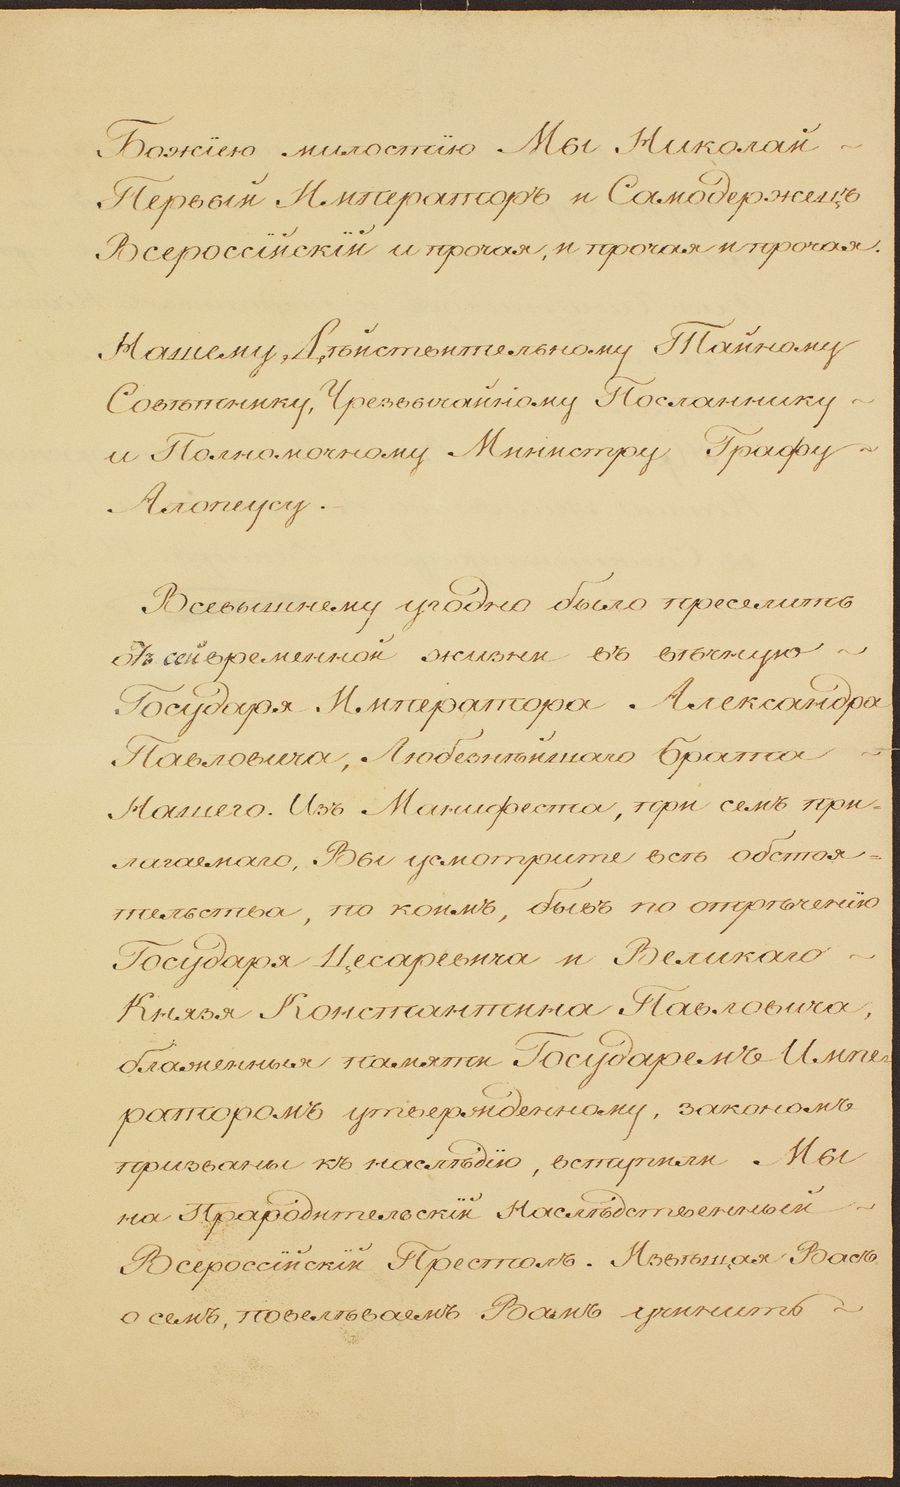 Божіею милостію Мы Николай ~
Первый Императоръ и Самодержецъ
Всероссійскій и прочая, и прочая и прочая.
Нашему Дѣйствительному Тайному
Совѣтнику, Чрезвычайному Посланнику ~
и Полномочному Министру Графу ~
Алопеусу. -
Всевышнему угодно было преселить
отъ сей временной жизни въ вѣчную ~
Государя Императора Александра
Павловича, Любезнѣйшаго Брата ~
Нашего. Изъ Манифеста, при семъ при-
лагаемаго, Вы усмотрите всѣ обстоя=
тельства, по коимъ, бывъ по отрѣченію
Государя Цесаревича и Великаго ~
Князя Константина Павловича,
блаженныя памяти Государемъ Импе-
раторомъ утвержденному, закономъ
призваны къ наслѣдію, вступили Мы
на Прародительскій Наслѣдственный ~
Всероссійскій Престолъ. Извѣщая Васъ
о семъ, повелѣваемъ Вамъ учинить ~